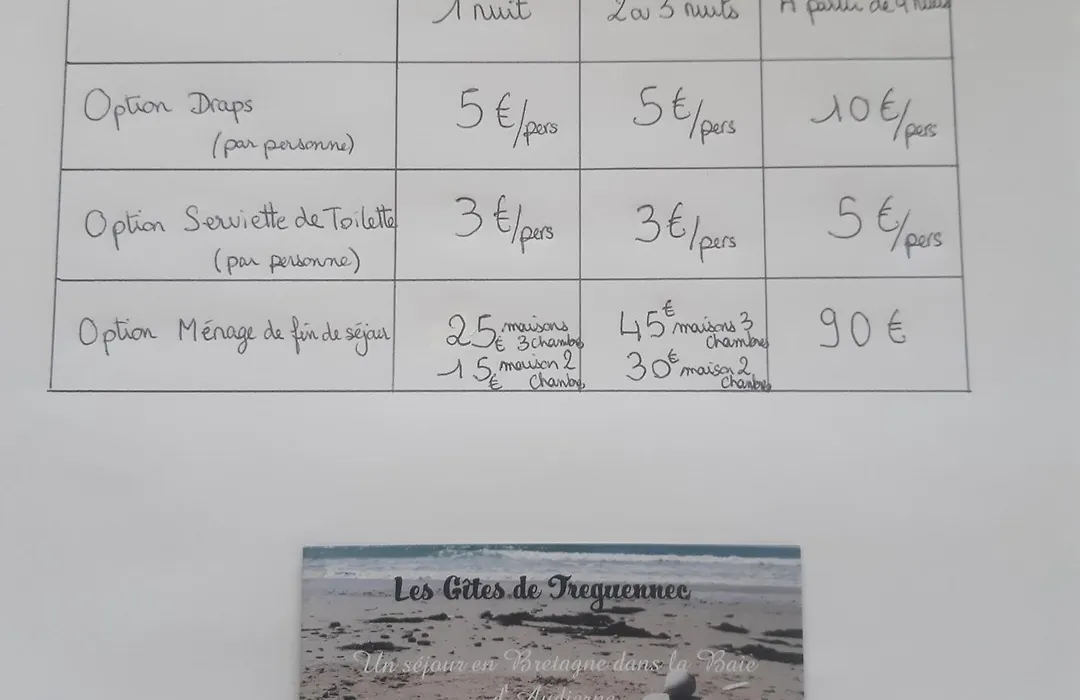 1 nuit 2 ou 3 nuits A partir de 4 nuits
Option Draps 5 €/pers 5 €/pers 10 €/pers
(par personne)
Option Serviette de Toilette 3 €/pers 3 €/pers 5 €/pers
(par personne)
Option Ménage de fin de séjour 25 € maisons 3 chambres 45 € maisons 3 chambres 90 €
15 € maison 2 chambres 30 € maison 2 chambres
Les Gîtes de Treguennec
Un séjour en Bretagne dans la Baie
d'Audierne